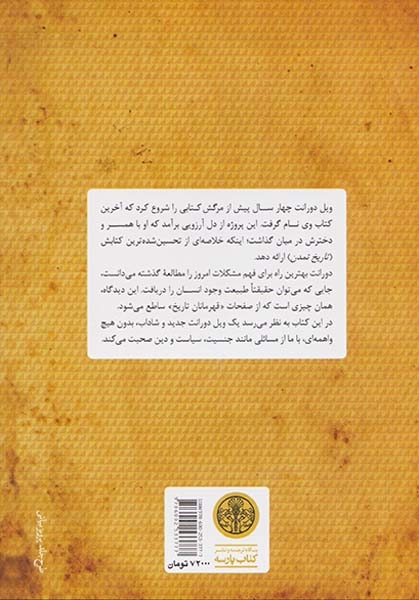 ویل دورانت چهار سال پیش از مرگش کتابی را شروع کرد که آخرین
کتاب وی نام گرفت. این پروژه از دل آرزویی برآمد که او با همسر و
دخترش در میان گذاشت؛ اینکه خلاصه‌ای از تحسین‌شده‌ترین کتابش
(تاریخ تمدن) ارائه دهد.
دورانت بهترین راه برای فهم مشکلات امروز را مطالعهٔ گذشته می‌دانست،
جایی که می‌توان حقیقتاً طبیعت وجود انسان را دریافت. این دیدگاه،
همان چیزی است که از صفحات «قهرمانان تاریخ» ساطع می‌شود.
در این کتاب به نظر می‌رسد یک ویل دورانت جدید و شاداب، بدون هیچ
واهمه‌ای، با ما از مسائلی مانند جنسیت، سیاست و دین صحبت می‌کند.
بنگاه ترجمه و نشر
کتاب پارسه
۷۲۰۰۰ تومان